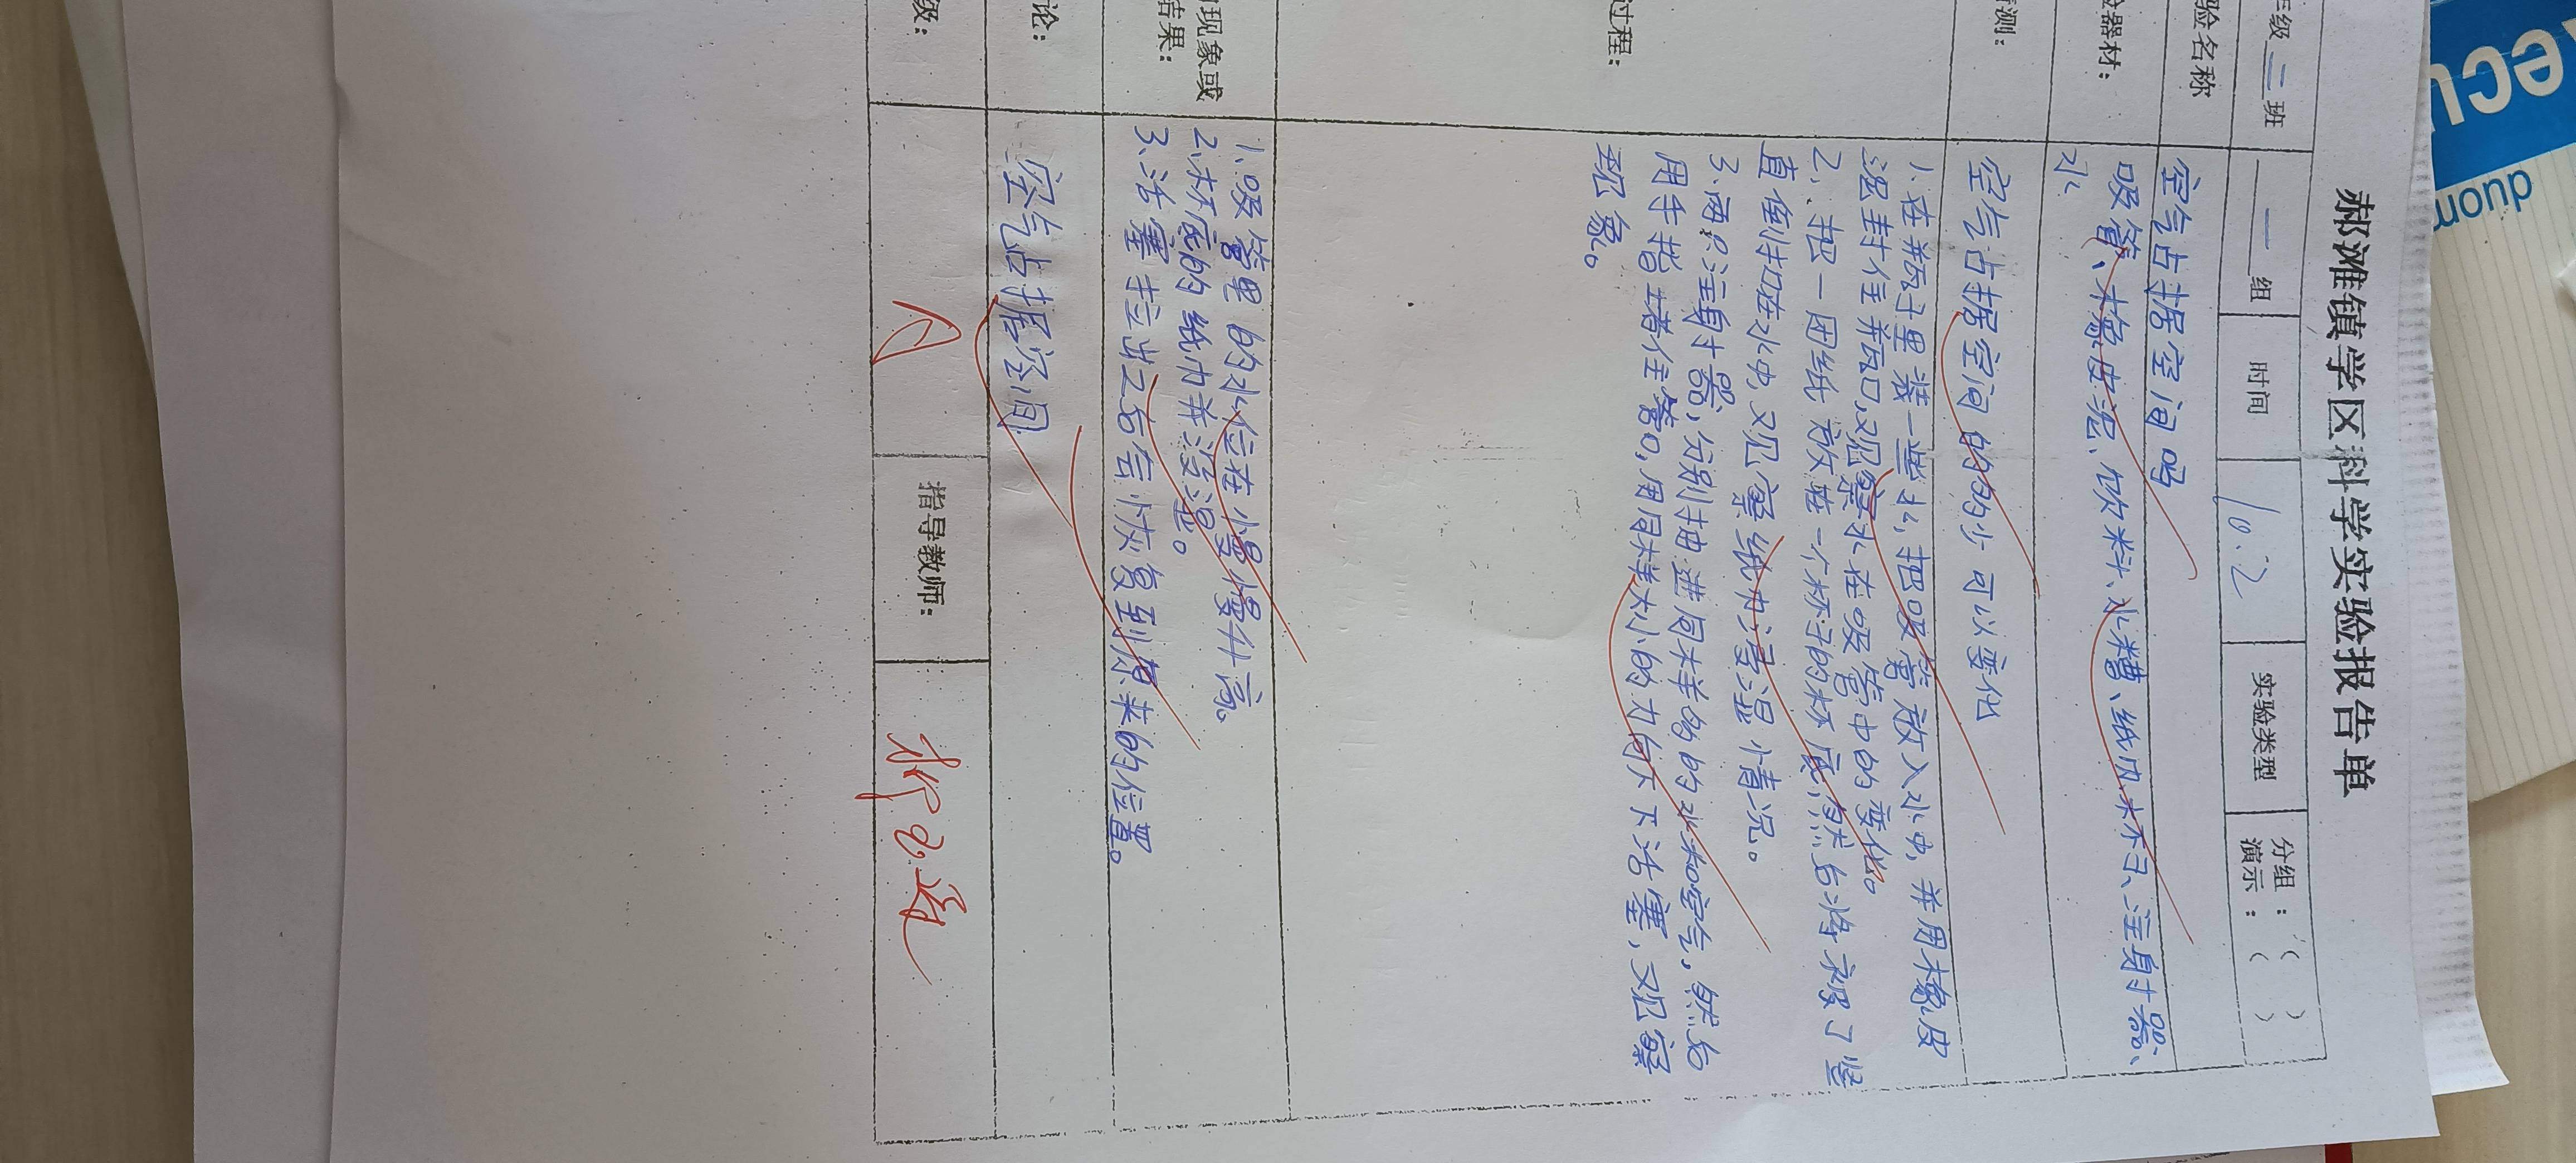 郝滩镇学区科学实验报告单
年级 二 班 一 组 时间 10.2 实验类型 分组：（ ）
演示：（ ）
验名称 空气占据空间吗
验器材： 吸管、橡皮泥、饮料、水糟、纸巾、杯子、注射器、
水
猜测： 空气占据空间的的少可以变化
过程： 1.在瓶子里装一些水，把吸管放入水中，并用橡皮
泥封住瓶口，观察水在吸管中的变化。
2.把一团纸放在一个杯子的杯底，然后将 竖
直倒扣在水中，观察纸巾浸湿情况。
3.两只注射器，分别抽进同样多的水和空气，然后
用手指堵住管口，用同样大小的力向下下活塞，观察
现象。
现象或
结果： 1.吸管里的水位在慢慢升高。
2.杯底的纸巾并没湿。
3.活塞拉出之后会恢复到原来的位置。
论： 空气占据空间
级： A 指导教师：
ecu
duom